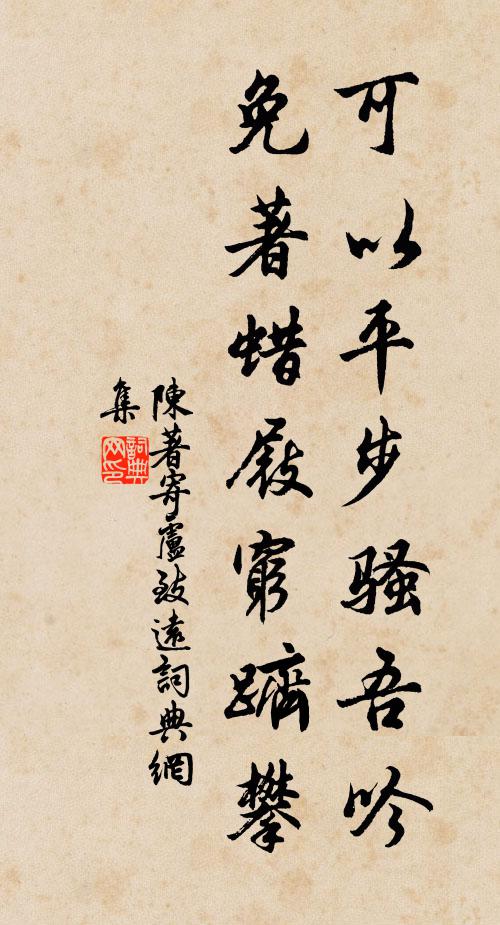 可以平步騷吾吟
免著蜡屐窮躋攀
陳著寄盧致遠詞典網
集
詞典網印